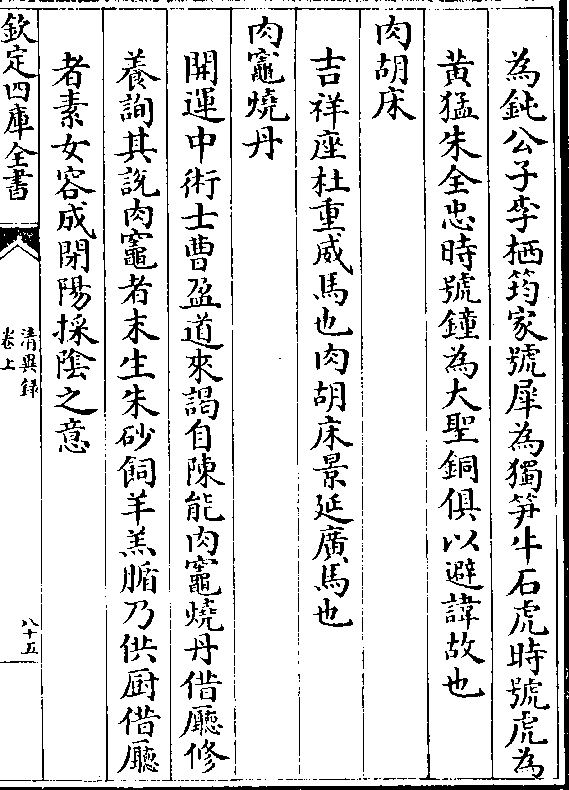 為鈍公子李栖筠家號犀為獨笋牛石虎時號虎為
黃猛朱全忠時號鐘為大聖銅俱以避諱故也
肉胡床
吉祥座杜重威馬也肉胡床景延廣馬也
肉竈燒丹
開運中術士曹盈道來謁自陳能肉竈燒丹借廳修
養詢其說肉竈者末生朱砂飼羊羔腯乃供厨借廳
者素女容成閉陽採陰之意
欽定四庫全書
清異録
卷上
八十五